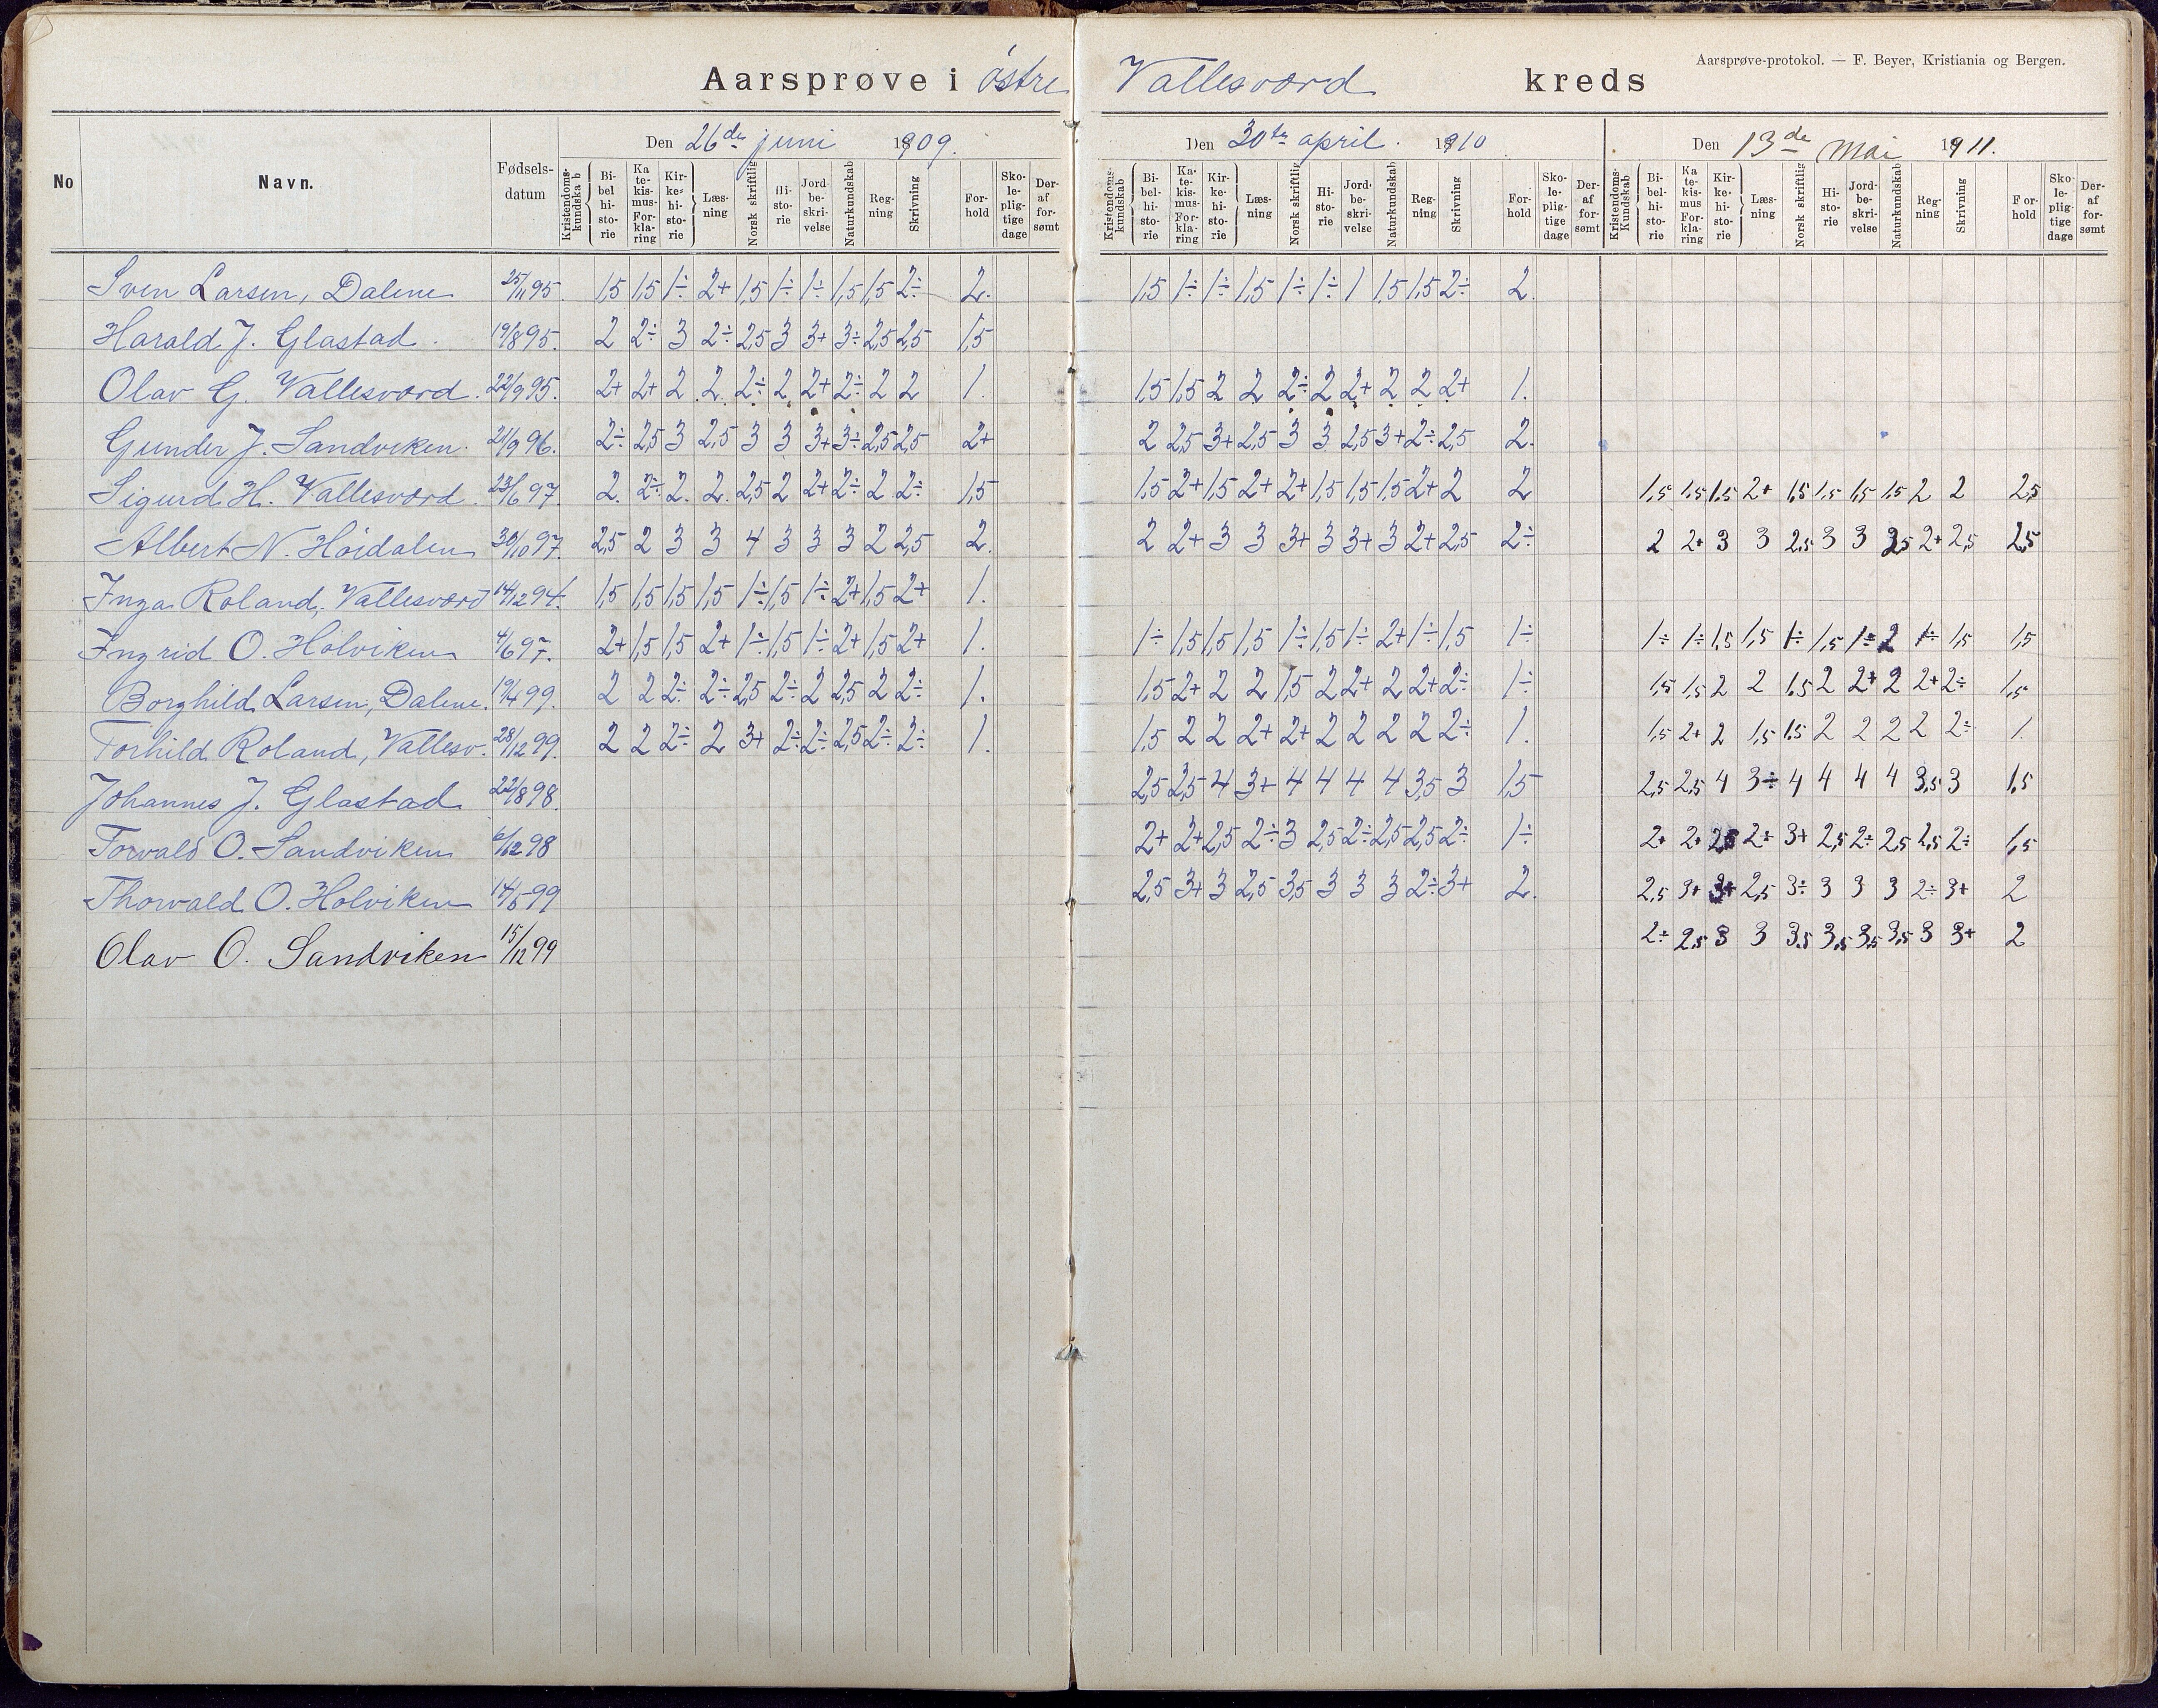 Aarsprøve-protokol. — F. Beyer, Kristiania og Bergen.
Aarsprøve i østre Vallesværd kreds
No Navn. Fødsels-datum
Den 26de juni 1909.
Kristendoms-kundskab Bi-bel hi-sto-rie Ka te-kis-mus-For-kla-ring Kir-ke-hi-sto-rie Læs-ning Norsk skriftlig Hi-sto-rie Jord-be-skri-velse Naturkundskab Reg-ning Skrivning For-hold Sko-le-plig-tige dage Der-af for-sømt
Den 30te april. 1910
Kristendoms-kundskab Bi-bel-hi-sto-rie Ka-te-kis-mus-For-kla-ring Kir-ke-hi-sto-rie Læs-ning Norsk skriftlig Hi-sto-rie Jord-be-skri-velse Naturkundskab Reg-ning Skrivning For-hold Sko-le-plig-tige dage Der-af for-sømt
Den 13de Mai 1911.
Kristendoms-Kundskab Bi-bel-hi-sto-rie Ka te-kis-mus For-kla-ring Kir-ke-hi-sto-rie Læs-ning Norsk skriftlig Hi-sto-rie Jord-be-skri-velse Naturkundskab Reg-ning Skrivning For-hold Sko-le-plig-tige dage Der-af for-sømt
Sven Larsen, Dalene 25/11 95. 1,5 1,5 1÷ 2+ 1,5 1÷ 1÷ 1,5 1,5 2÷ 2. 1,5 1÷ 1÷ 1,5 1÷ 1÷ 1 1,5 1,5 2÷ 2.
Harald J. Glastad. 19/8 95. 2 2÷ 3 2÷ 2,5 3 3+ 3÷ 2,5 2,5 1,5
Olav G. Vallesværd. 22/9 95. 2+ 2+ 2 2 2÷ 2 2+ 2÷ 2 2 1. 1,5 1,5 2 2 2÷ 2 2+ 2 2 2+ 1.
Gunder J. Sandviken. 21/9 96. 2÷ 2,5 3 2,5 3 3 3+ 3÷ 2,5 2,5 2+ 2 2,5 3+ 2,5 3 3 2,5 3+ 2÷ 2,5 2.
Sigurd H. Vallesværd. 23/6 97. 2. 2÷ 2. 2. 2,5 2 2+ 2÷ 2 2÷ 1,5 1,5 2+ 1,5 2+ 2+ 1,5 1,5 1,5 2+ 2 2 1,5 1,5 1,5 2+ 1,5 1,5 1,5 1,5 2 2 2,5
Albert N. Høidalen 30/10 97. 2,5 2 3 3 4 3 3 3 2 2,5 2. 2 2+ 3 3 3+ 3 3+ 3 2+ 2,5 2÷ 2 2+ 3 3 2,5 3 3 2,5 2+ 2,5 2,5
Inga Roland, Vallesværd 14/12 94. 1,5 1,5 1,5 1,5 1÷ 1,5 1÷ 2+ 1,5 2+ 1.
Ingrid O. Holviken 4/6 97. 2+ 1,5 1,5 2+ 1÷ 1,5 1÷ 2+ 1,5 2+ 1. 1÷ 1,5 1,5 1,5 1÷ 1,5 1÷ 2+ 1÷ 1,5 1÷ 1÷ 1÷ 1,5 1,5 1÷ 1,5 1÷ 2 1÷ 1,5 1,5
Borghild Larsen, Dalene. 19/4 99. 2 2 2÷ 2÷ 2,5 2÷ 2 2,5 2 2÷ 1. 1,5 2+ 2 2 1,5 2 2+ 2 2+ 2÷ 1÷ 1,5 1,5 2 2 1,5 2 2+ 2 2+ 2÷ 1,5
Torhild Roland, Vallesv. 28/12 99. 2 2 2÷ 2 3+ 2÷ 2÷ 2,5 2÷ 2÷ 1. 1,5 2 2 2+ 2+ 2 2 2 2 2÷ 1. 1,5 2+ 2 1,5 1,5 2 2 2 2 2÷ 1.
Johannes J. Glastad 22/8 98. 2,5 2,5 4 3+ 4 4 4 4 3,5 3 1,5 2,5 2,5 4 3÷ 4 4 4 4 3,5 3 1,5
Torvald O. Sandviken 6/12 98 2+ 2+ 2,5 2÷ 3 2,5 2÷ 2,5 2,5 2÷ 1÷ 2+ 2+ 2,5 2÷ 3+ 2,5 2÷ 2,5 2,5 2÷ 1,5
Thorvald O. Holviken 14/5 99 2,5 3+ 3 2,5 3,5 3 3 3 2÷ 3+ 2. 2,5 3+ 3+ 2,5 3÷ 3 3 3 2÷ 3+ 2
Olav O. Sandviken 15/12 99 2÷ 2,5 3 3 3,5 3,5 3,5 3,5 3 3+ 2